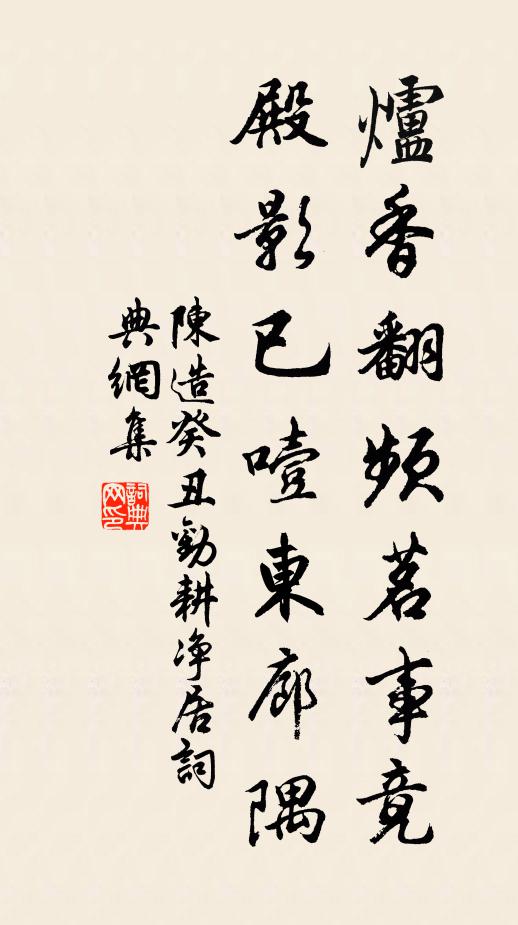 爐香翻頻茗事竟
殿影已噎東廊隅
陳造癸丑勸耕净居詞
典網集
詞典網印